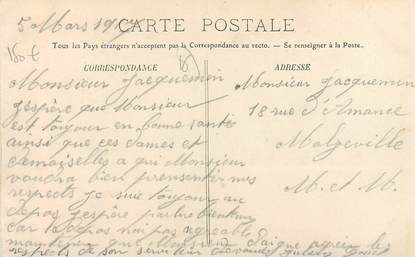 5 Mars 19
CARTE POSTALE
150 f
Tous les Pays étrangers n'acceptent pas la Correspondance au recto. — Se renseigner à la Poste.
CORRESPONDANCE
Monsieur Jacquemin
j'espère que Monsieur
est toujour en bonne santée
ainsi que ces Dames et
Demoiselles a qui Monsieur
voudra bien presenter mes
respects je suis toujour au
depos j'espère partire bientau
car le depos n'ai pas agreable
maintenen que Monsieur daigne agréer les
respects de son serviteur
ADRESSE
Monsieur Jacquemin
18 rue d'Amance
Malzeville
M. et M.